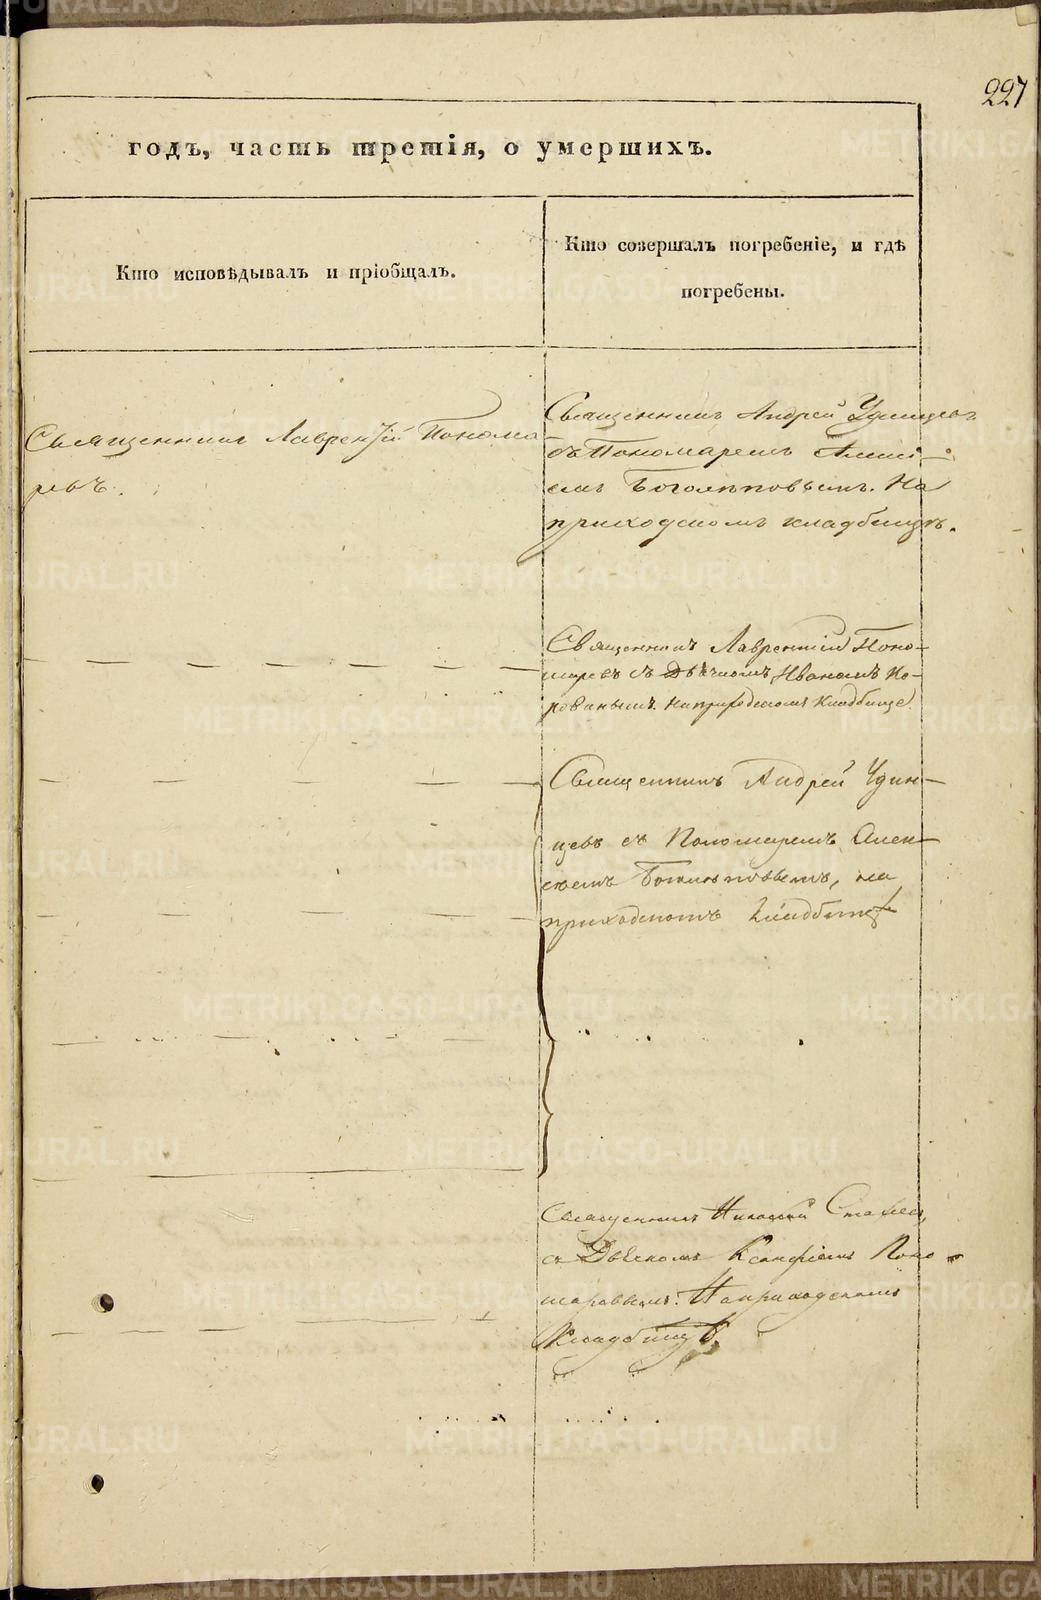 227
годъ, часть третія, о умершихъ.
Кто исповѣдывалъ и пріобщалъ.
Кто совершалъ погребеніе, и гдѣ
погребены.
Священникъ Лаврентій Понома-
ревъ.
Священникъ Андрей Удинцевъ
съ Пономаремъ Алексі-
емъ Боголѣповымъ. На
приходскомъ кладбищѣ.
Священникъ Лаврентій Поно-
маревъ съ Дьячкомъ Иваномъ
На приходскомъ Кладбище.
Священникъ Андрей Удин-
цевъ съ Пономаремъ Алек-
сѣемъ Боголѣповымъ, на
приходскомъ кладбищѣ
Священникъ Николай
съ Дьячкомъ Ксанфіемъ Поно-
маревымъ. На приходскомъ
Кладбищѣ.
METRIKI.GASO-URAL.RU